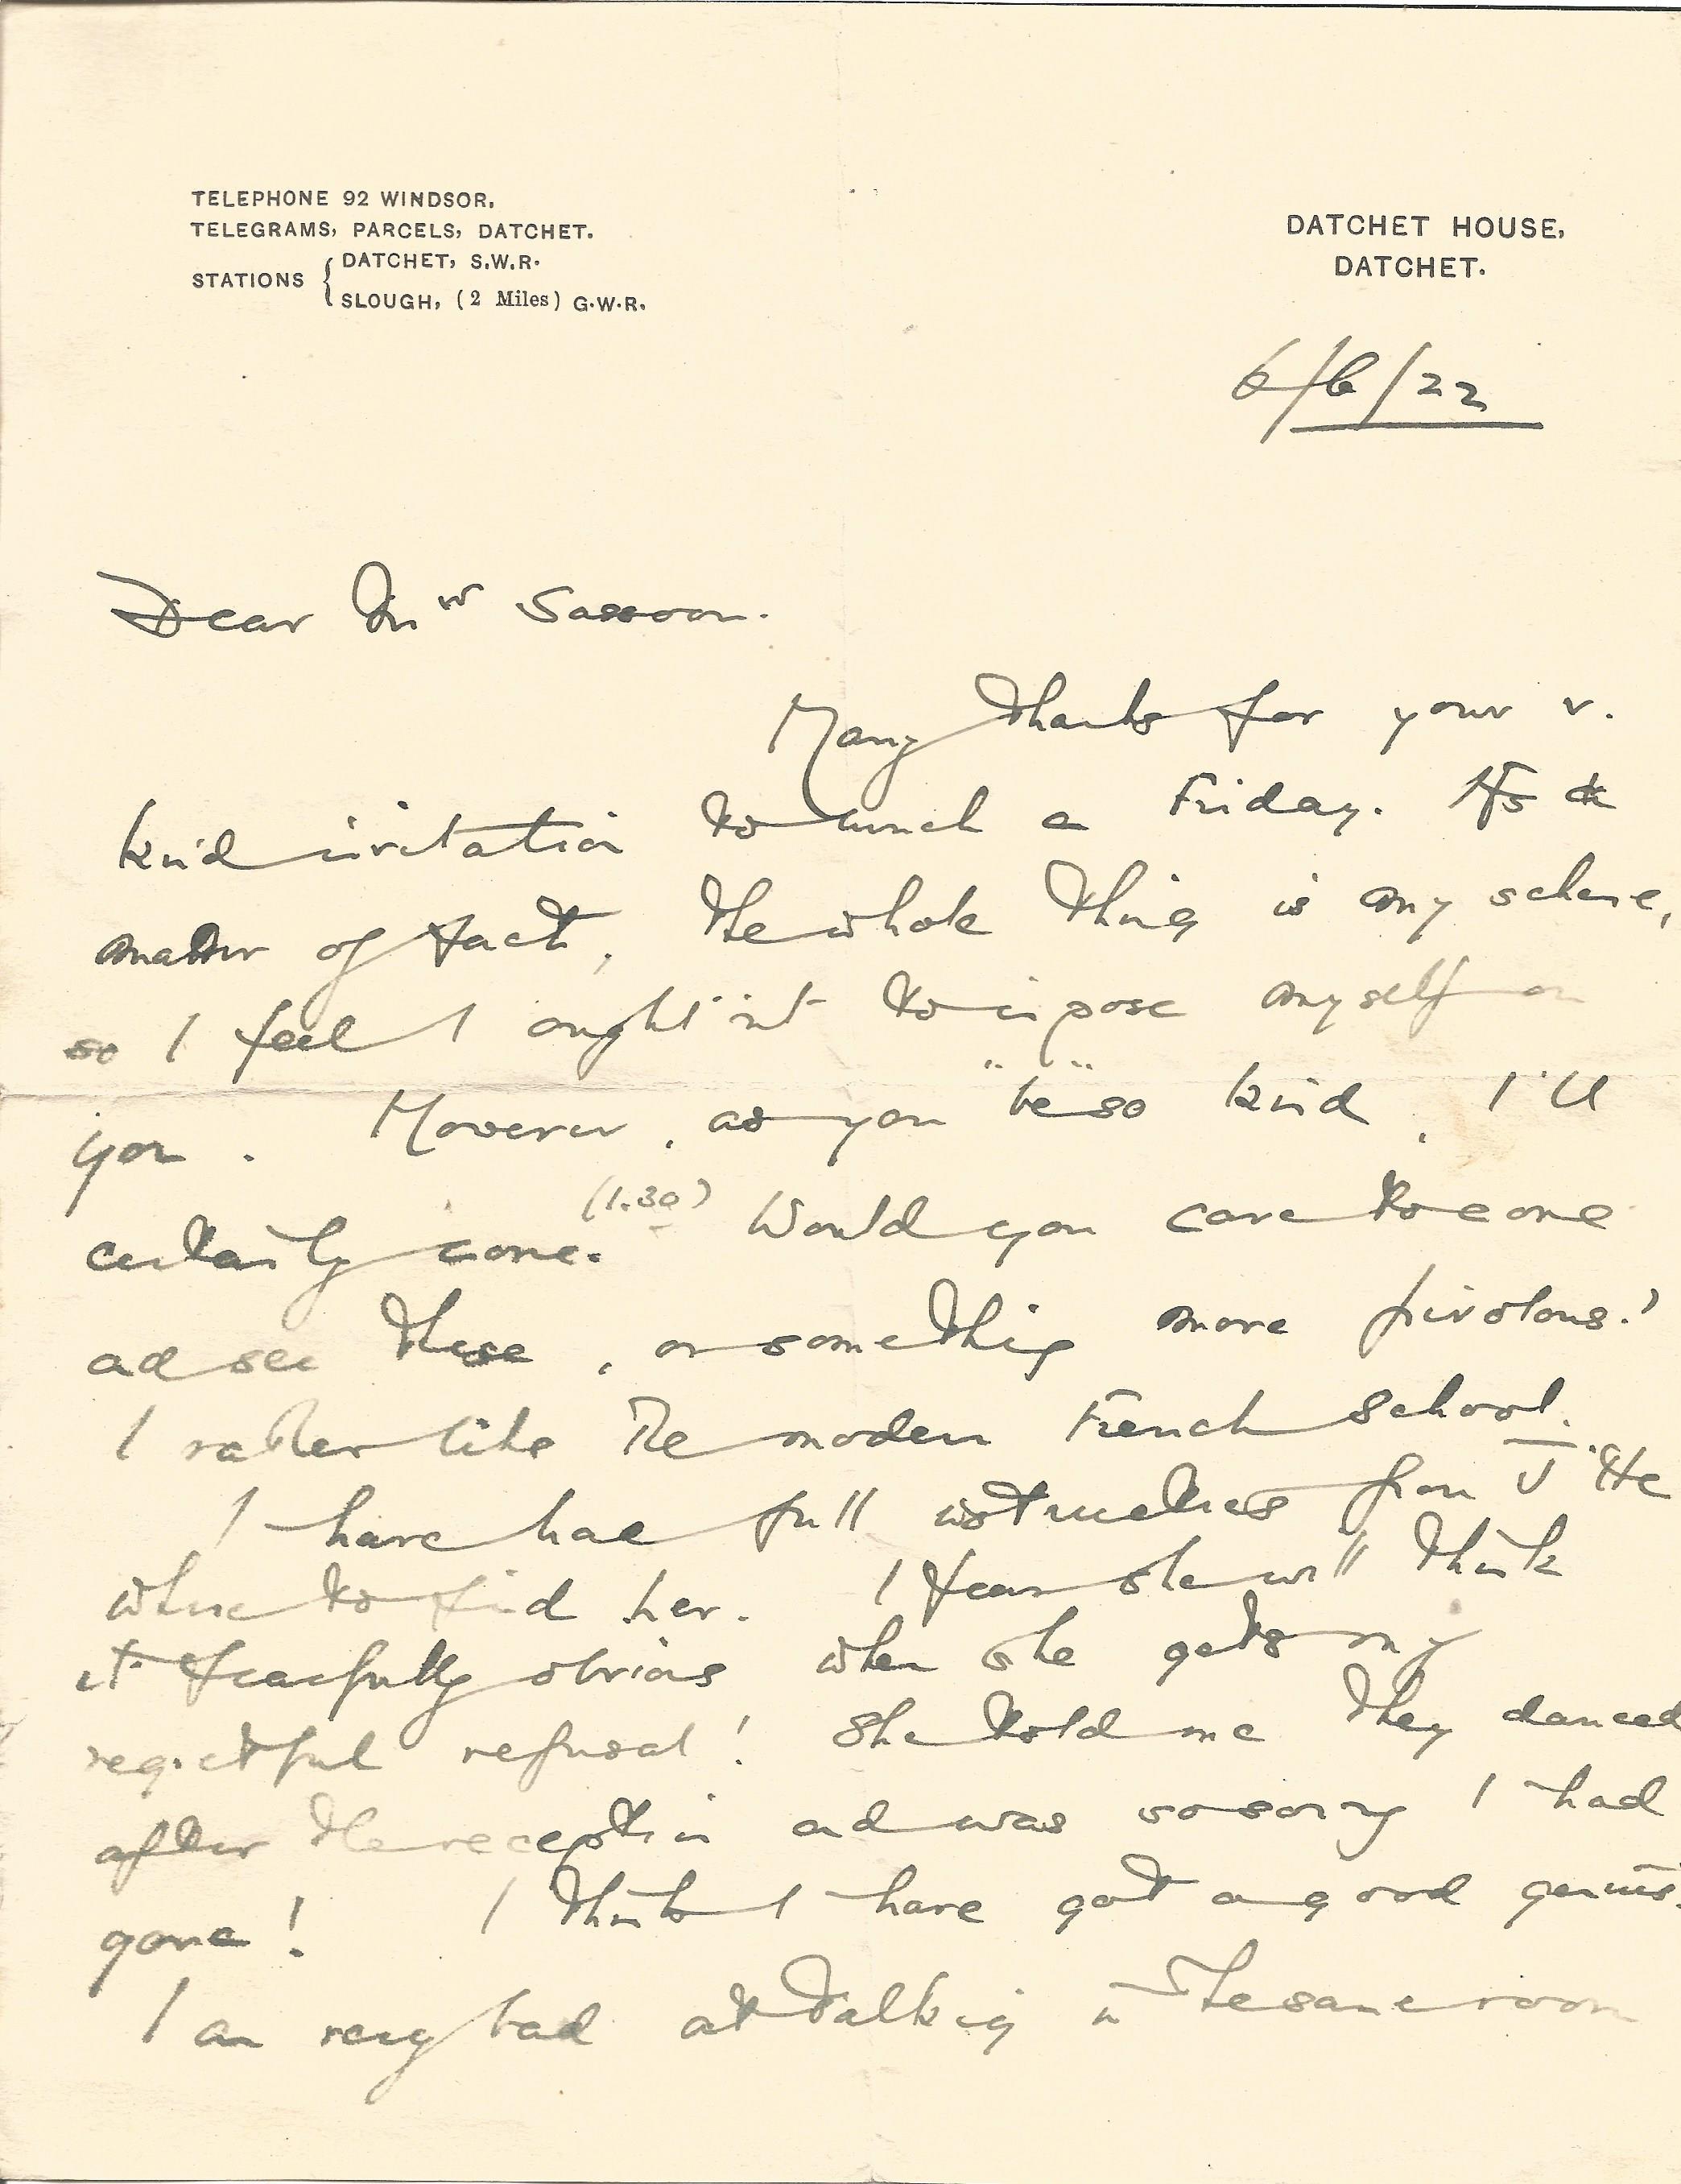 TELEPHONE 92 WINDSOR.
TELEGRAMS, PARCELS, DATCHET.
STATIONS { DATCHET, S.W.R.
SLOUGH, (2 Miles) G.W.R.
DATCHET HOUSE,
DATCHET.
6/6/22
Dear Mrs Sassoon.
Many thanks for your v.
kind invitation to lunch on Friday. As a
matter of fact, the whole thing is my scheme,
so I feel I ought'nt to impose myself on
you. However, as you "be" so kind, I'll
certainly come. (1.30) Would you care to come
and see these, or something more frivolous?
I rather like the modern French School.
I have had full instructions from J
where to find her. I fear she will think
it fearfully obvious when she gets my
regretful refusal! She told me they danced
after the reception and was so sorry I had
gone! I think I have got a good genius.
I am very bad at talking in the same room